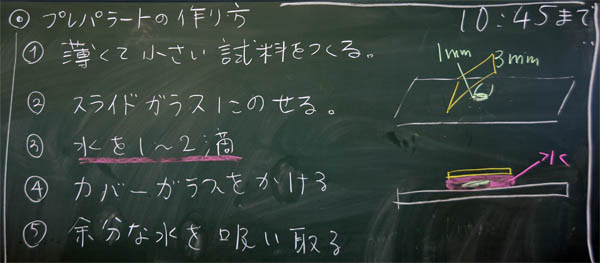 ◎ プレパラートの作り方
10:45まで
① 薄くて小さい試料をつくる。
② スライドガラスにのせる。
③ 水を1~2滴
④ カバーガラスをかける
⑤ 余分な水を吸い取る
1mm
3mm
水